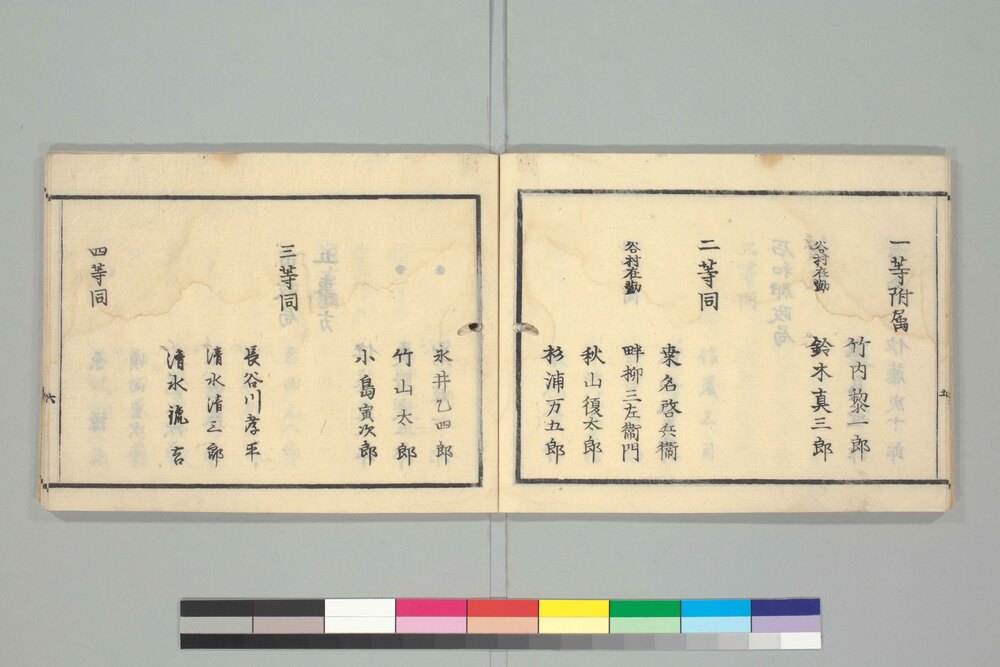 一等附属
竹内黎一郎
谷村在勤
鈴木真三郎
二等同
桒名啓兵衞
谷村在勤
畔柳三左衞門
秋山復太郎
杉浦万五郎
氷井乙四郎
竹山太郎
小島寅次郎
三等同
長谷川孝平
清水清三郎
清水流吉
四等同
五
六